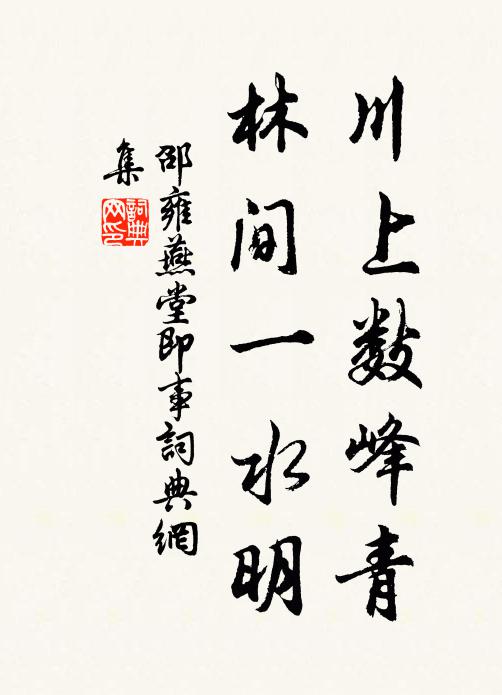 川上数峰青
林间一水明
邵雍燕堂即事詞典網
集
詞典
网印